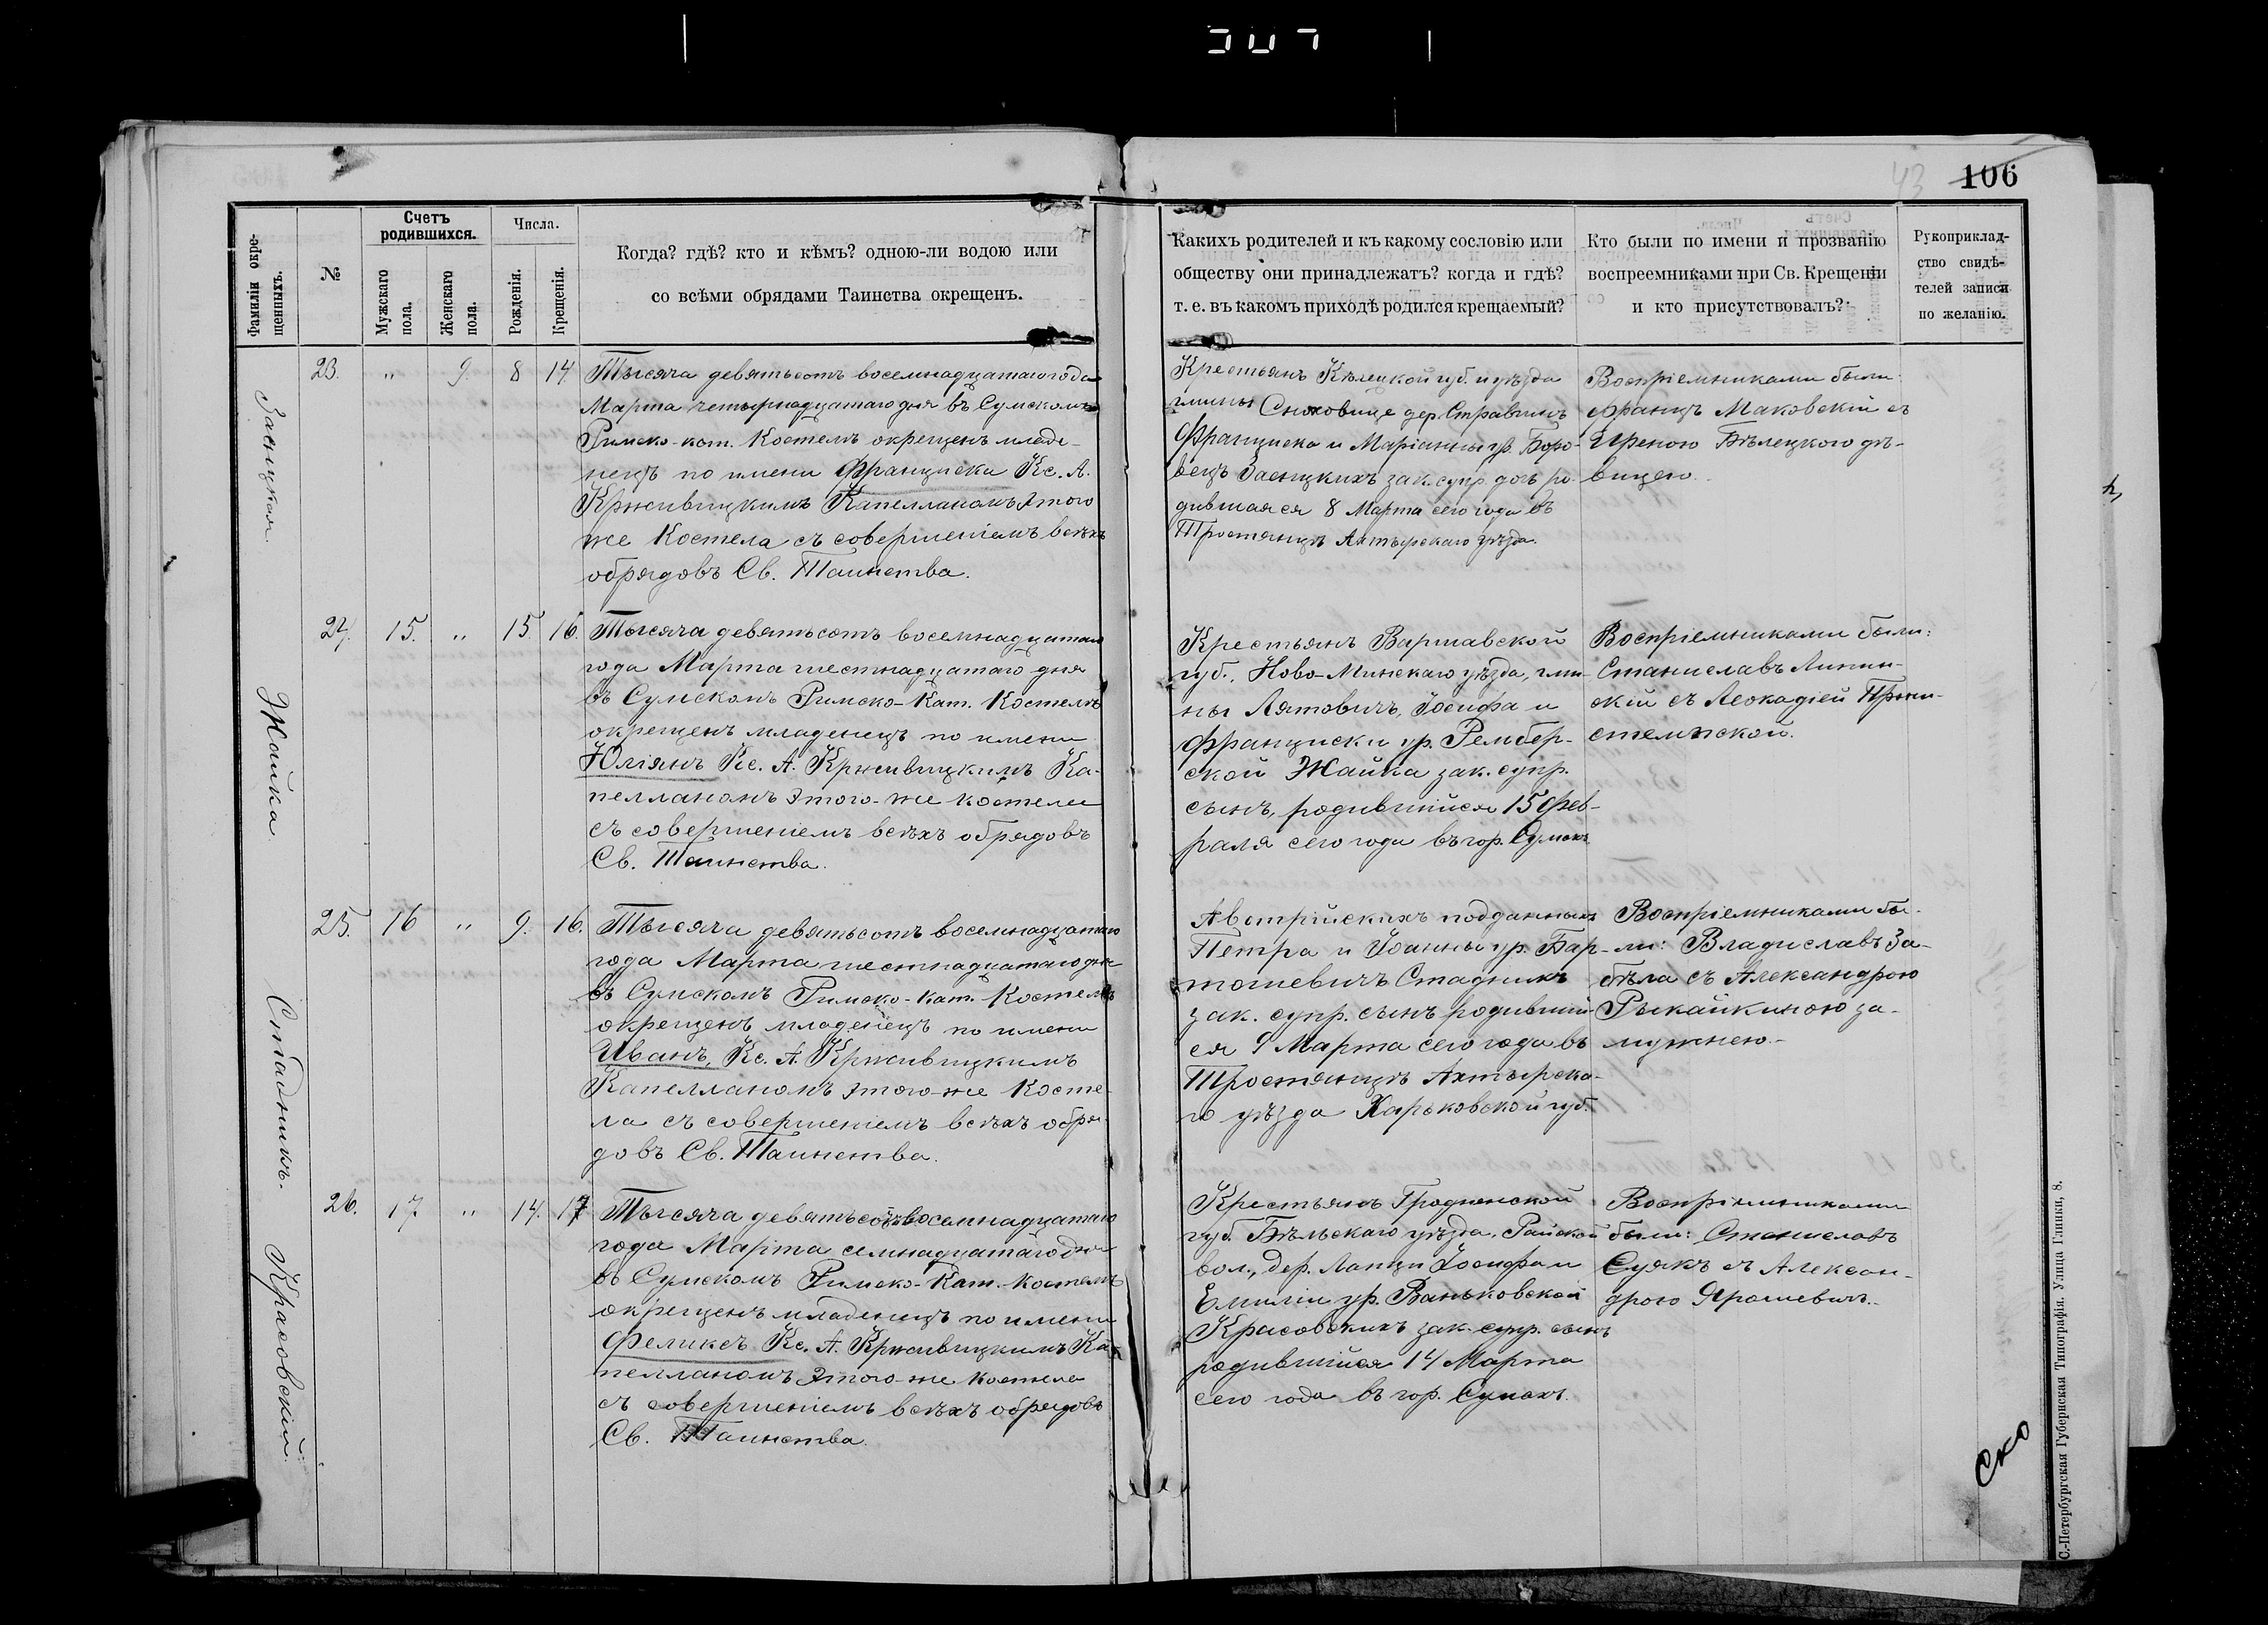 106
43
Фамиліи окре-
щенныхъ.
№
Счетъ
родившихся.
Мужскаго
пола.
Женскаго
пола.
Числа.
Рожденія.
Крещенія.
Когда? гдѣ? кто и кѣмъ? одною-ли водою или
со всѣми обрядами Таинства окрещенъ.
Какихъ родителей и къ какому сословію или
обществу они принадлежатъ? когда и гдѣ?
т. е. въ какомъ приходѣ родился крещаемый?
Кто были по имени и прозванію
воспреемниками при Св. Крещеніи
и кто присутствовалъ?
Рукоприклад-
ство свидѣ-
телей записи
по желанію.
Засуцкая
23. " 9. 8 14.
Тысяча девятьсотъ восемнадцатаго года
Марта четырнадцатаго дня въ Сумскомъ
Римско-кат. Костелѣ окрещенъ младе-
нецъ по имени Франциска Кс. А.
Крживицкимъ Капелланомъ этого
же Костела съ совершеніемъ всѣхъ
обрядовъ Св. Таинства.
Крестьянъ Кѣлецкой губ. и уѣзда
гмины дер.
Франциска и Маріанны ур. Боро-
вецъ зак. супр. дочь ро-
дившаяся 8 Марта сего года въ
Тростянцѣ Ахтырскаго уѣзда.
Воспріемниками были:
Францъ Маковскій съ
Иреною Бѣлецкою дѣ-
вицею.
Жайка
24. 15. " 15. 16.
Тысяча девятьсотъ восемнадцатаго
года Марта шестнадцатаго дня
въ Сумскомъ Римско-Кат. Костелѣ
окрещенъ младенецъ по имени
Юліянъ Кс. А. Крживицкимъ Ка-
пелланомъ этого-же костела
съ совершеніемъ всѣхъ обрядовъ
Св. Таинства.
Крестьянъ Варшавской
губ., Ново-Минскаго уѣзда, гми-
ны Лятовичъ, Іосифа и
Франциски ур. Рембер-
ской Жайка зак. супр.
сынъ, родившійся 15 Фев-
раля сего года въ гор. Сумахъ
Воспріемниками были:
Станиславъ Липин-
скій съ Леокадіей Пржи-
стемпской.
Стадникъ.
25. 16 " 9. 16.
Тысяча девятьсотъ восемнадцатаго
года Марта шестнадцатаго дня
въ Сумскомъ Римско-Кат. Костелѣ
окрещенъ младенецъ по имени
Иванъ, Кс. А. Крживицкимъ
Капелланомъ этого-же Косте-
ла съ совершеніемъ всѣхъ обря-
довъ Св. Таинства.
Австрійскихъ подданныхъ
Петра и Іоанны ур. Бар-
тошевичъ Стадникъ
зак. супр. сынъ родившій-
ся 9 Марта сего года въ
Тростянцѣ Ахтырска-
го уѣзда Харьковской губ.
Воспріемниками бы-
ли: Владиславъ За-
бѣла съ Александрою
Рыкайкиною за-
мужнею.-
Красовскій.
26. 17. " 14. 17
Тысяча девятьсотъ восемнадцатаго
года Марта семнадцатаго дня
въ Сумскомъ Римско-Кат. костелѣ
окрещенъ младенецъ по имени
Феликсъ Кс. А. Крживицкимъ Ка-
пелланомъ этого-же костела
съ совершеніемъ всѣхъ обрядовъ
Св. Таинства.
Крестьянъ Гродненской
губ. Бѣльскаго уѣзда, Райской
вол., дер. Лапци Іосифа и
Емиліи ур. Ваньковской
Красовскихъ зак. супр. сынъ
родившійся 14 Марта
сего года въ гор. Сумахъ.
Воспріемниками
были: Станиславъ
Суякъ съ Алексан-
дрою Ярошевичъ.-
ско
С.-Петербургская Губернская Типографія. Улица Глинки, 8.